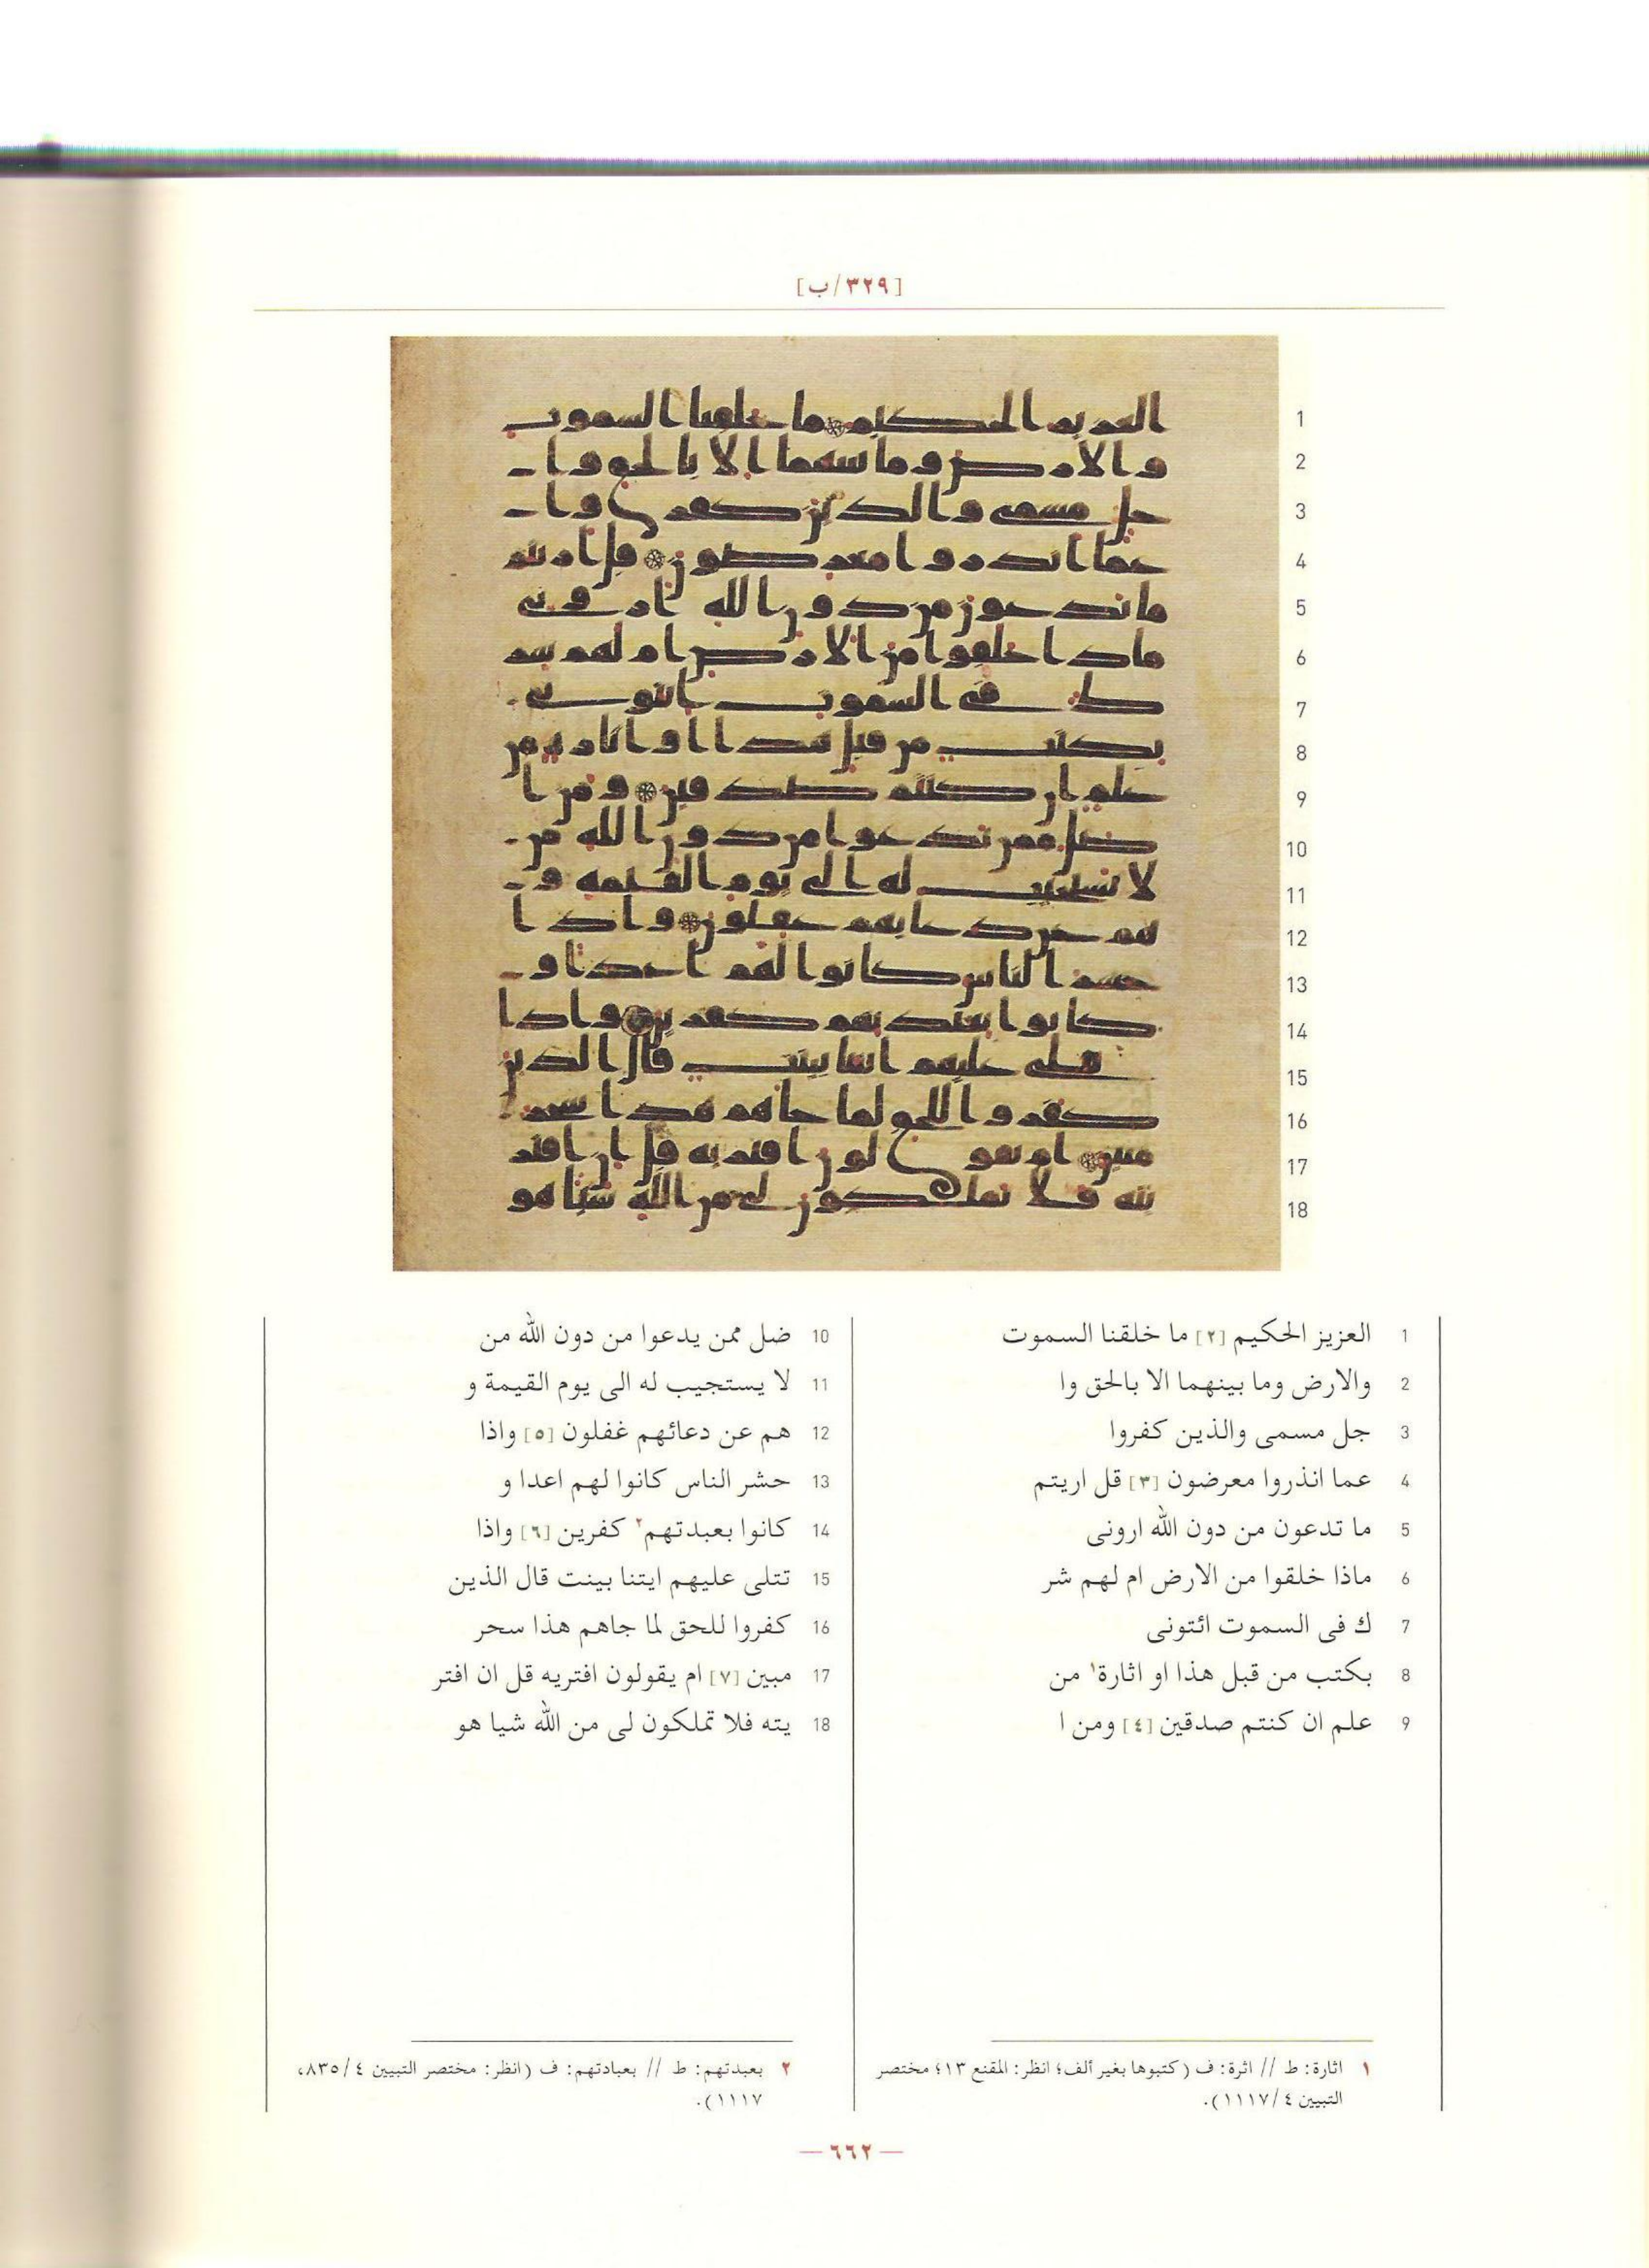 [٣٢٩/ب]
1
2
3
4
5
6
7
8
9
10
11
12
13
14
15
16
17
18
1 العزيز الحكيم [٢] ما خلقنا السموت
2 والارض وما بينهما الا بالحق وا
3 جل مسمى والذين كفروا
4 عما انذروا معرضون [٣] قل اريتم
5 ما تدعون من دون الله ارونى
6 ماذا خلقوا من الارض ام لهم شر
7 ك فى السموت ائتونى
8 بكتب من قبل هذا او اثارة١ من
9 علم ان كنتم صدقين [٤] ومن ا
10 ضل ممن يدعوا من دون الله من
11 لا يستجيب له الى يوم القيمة و
12 هم عن دعائهم غفلون [٥] واذا
13 حشر الناس كانوا لهم اعدا و
14 كانوا بعبدتهم٢ كفرين [٦] واذا
15 تتلى عليهم ايتنا بينت قال الذين
16 كفروا للحق لما جاهم هذا سحر
17 مبين [٧] ام يقولون افتريه قل ان افتر
18 يته فلا تملكون لى من الله شيا هو
١ اثارة: ط // اثرة: ف (كتبوها بغير ألف؛ انظر: المقنع ١٣؛ مختصر
التبيين ٤/١١١٧).
٢ بعبدتهم: ط // بعبادتهم: ف (انظر: مختصر التبيين ٤/٨٣٥،
١١١٧).
— ٦٦٢ —